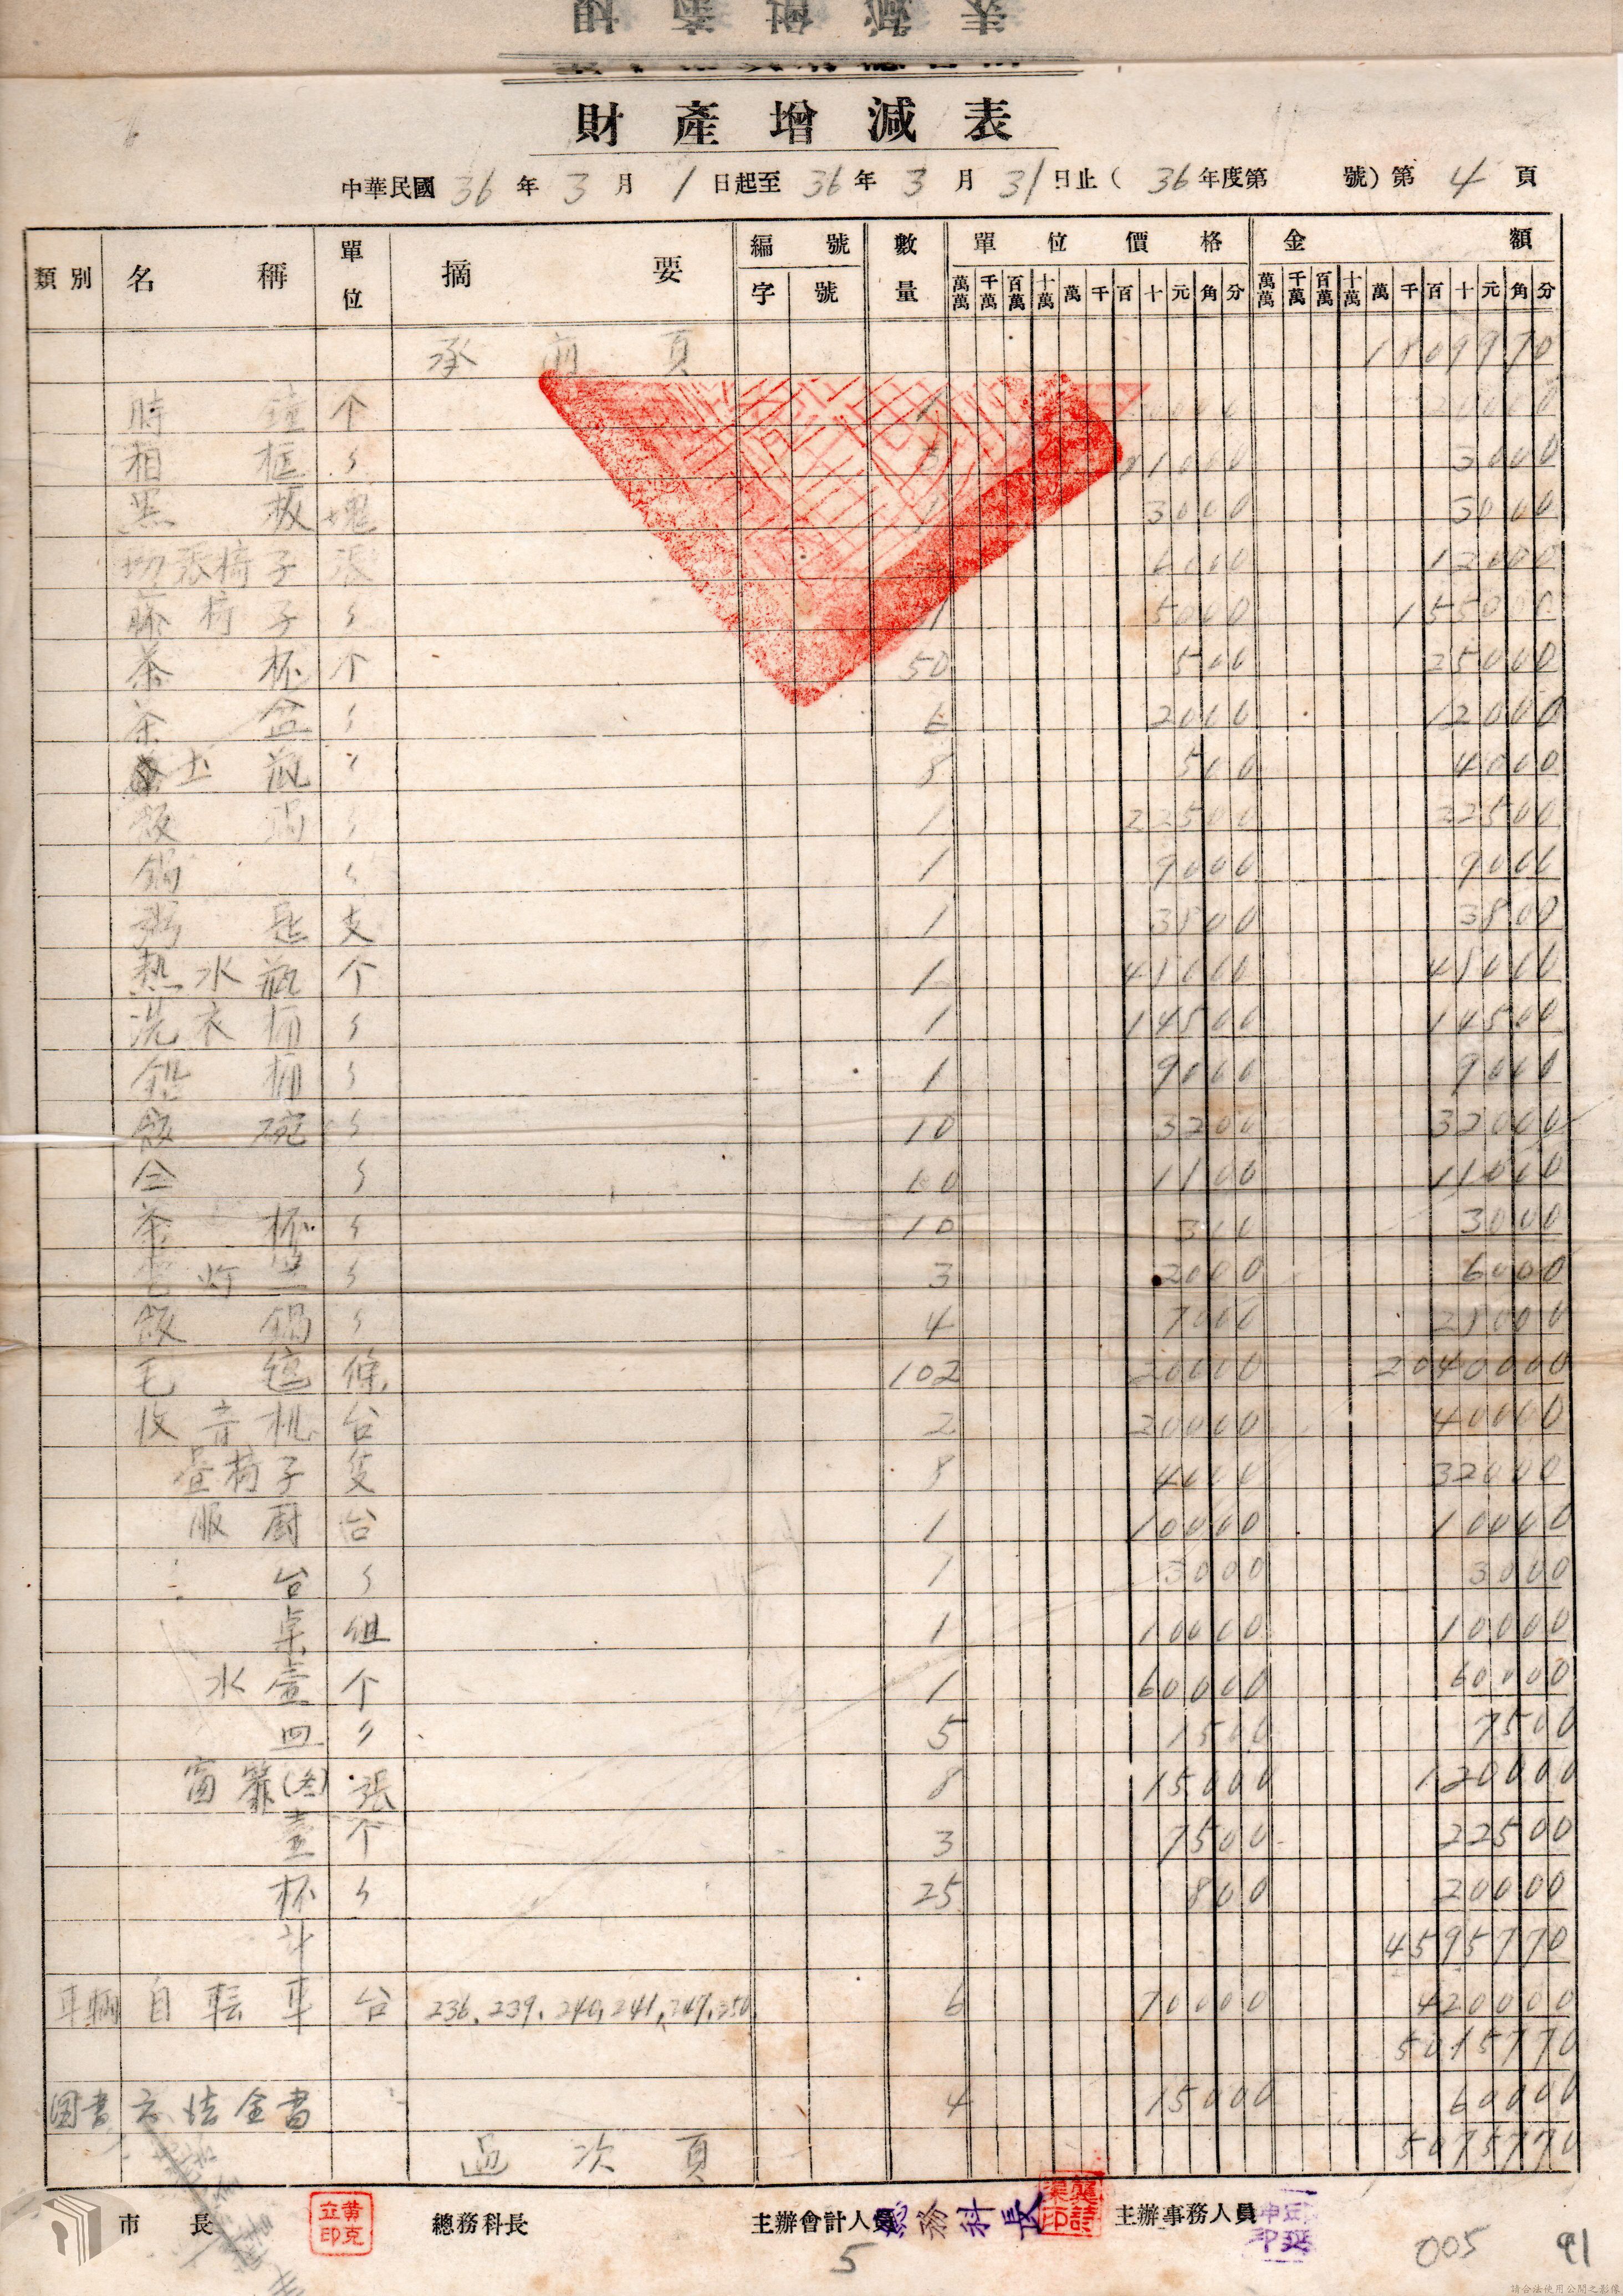 財產增減表
中華民國36年3月1日起至36年3月31日止(36年度第 號)第4頁
類別 名稱 單位 摘要 編號 數量 單位價格 金額
字 號 萬萬 千萬 百萬 十萬 萬 千 百 十 元 角 分 萬萬 千萬 百萬 十萬 萬 千 百 十 元 角 分
承前頁
時鐘 个 1
相框 〃 1000 3000
黑板 塊 1 3000 3000
椅子 張 6000 12000
藤椅子 〃 5000 155000
茶杯 个 50 500 25000
茶盆 〃 6 2000 12000
土瓶 〃 8 500 4000
飯 〃 1 22500 22500
鍋 〃 1 9000 9000
粥匙 支 1 3800 3800
熱水瓶 个 1 41000 41000
洗衣桶 〃 1 14500 14500
鉛桶 〃 1 9000 9000
飯碗 〃 10 3200 32000
仝 〃 10 1100 11000
茶杯 〃 10 300 3000
〃 3 2000 6000
飯鍋 〃 4 7000 28000
毛氈 條 102 20000 2040000
收音机 台 2 20000 40000
椅子 隻 8 4000 32000
服廚 台 1 10000 10000
台 〃 1 3000 3000
桌 組 1 10000 10000
水壺 个 1 60000 60000
皿 〃 5 1500 7500
窗簾 張 8 15000 120000
壺 个 3 7500 22500
杯 〃 25 800 20000
計 4595770
車輛 自転車 台 236.239.240.241.249.250 6 70000 420000
5015770
圖書 六法全書 4 15000 60000
過次頁 5075770
市長 黃克立印 總務科長 主辦會計人員 總務科長 主辦事務人員
5
005 91
請合法使用公開之影像